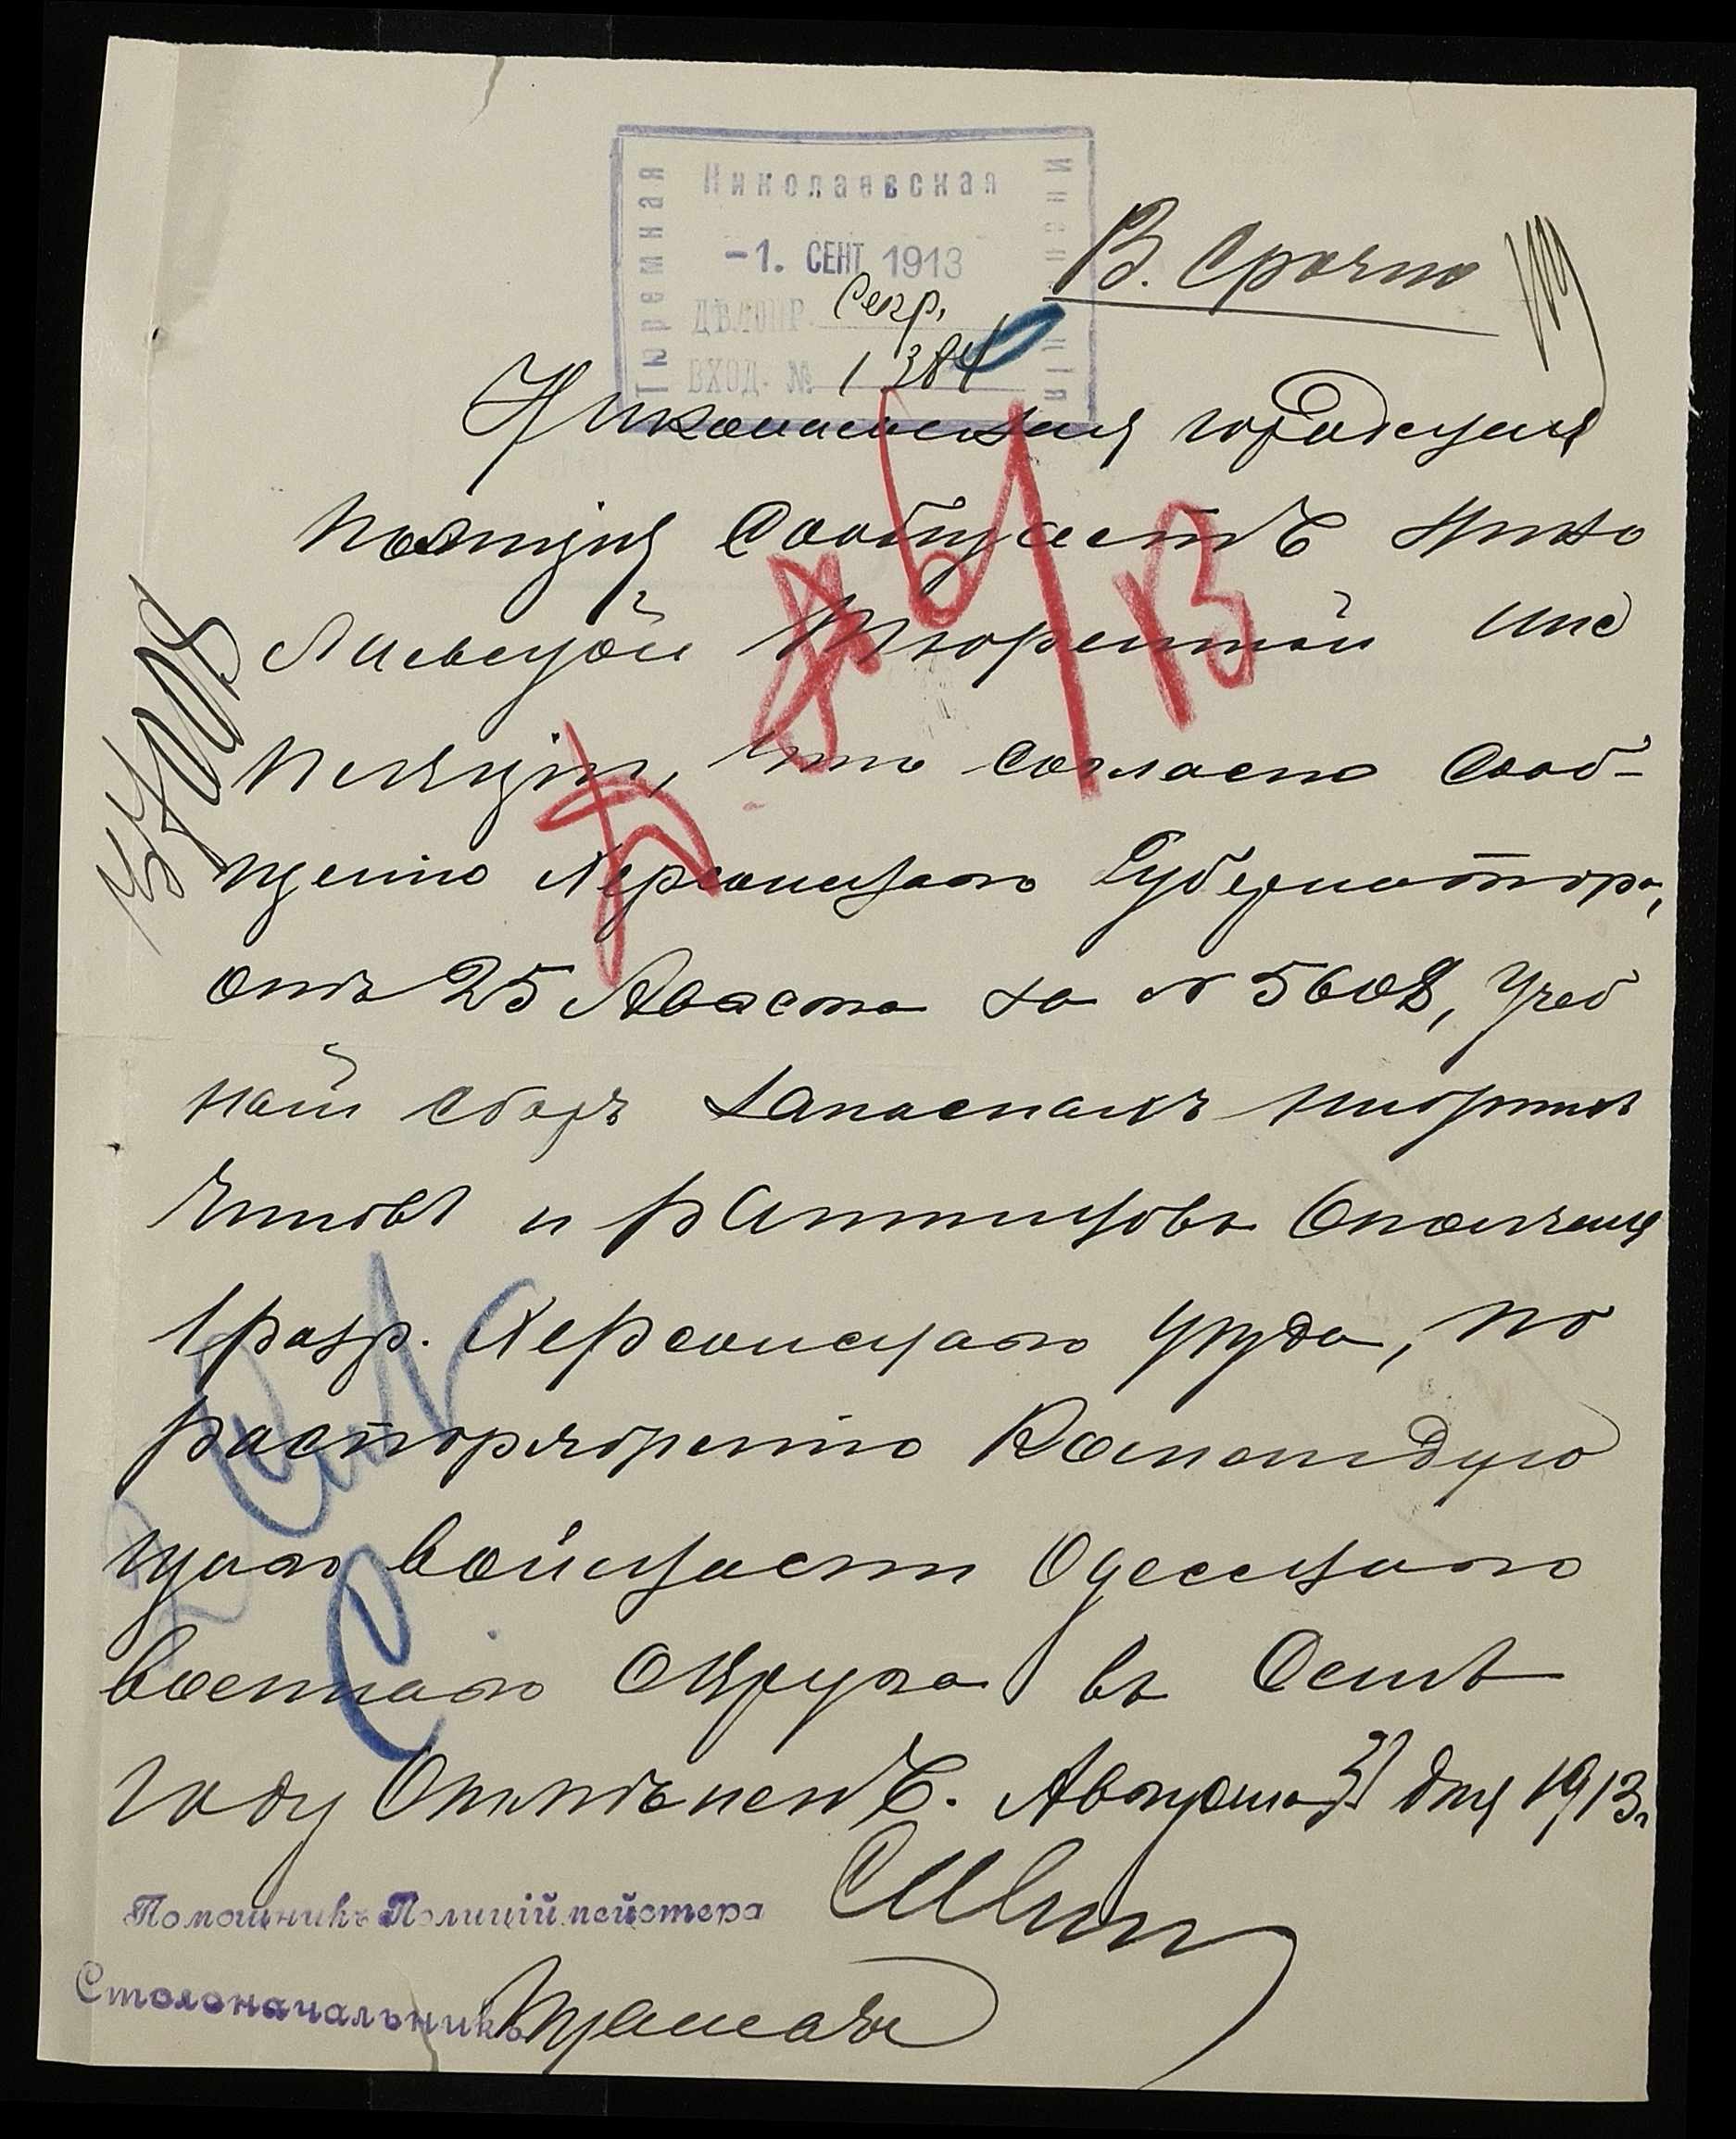 Николаевская
Тюремная
Инспекція
-1. СЕНТ 1913
ДѢЛОПР. Секр.
ВХОД. № 1384
В. Срочно
Николаевская городская
полиція сообщаетъ Нико
лаевской Тюремной Инс
пекціи, что согласно сооб-
щенію Херсонскаго Губернатора,
отъ 25 Августа за № 5608, Учеб
ный сборъ запасныхъ нижнихъ
чиновъ и ратниковъ ополченія
1 разр. Херсонскаго уѣзда, по
распоряженію Командую
щаго войсками Одесскаго
военнаго Округа въ семъ
году Отмѣненъ. Августа 31 дня 1913 г.
Помощникъ Полиціймейстера
Столоначальникъ